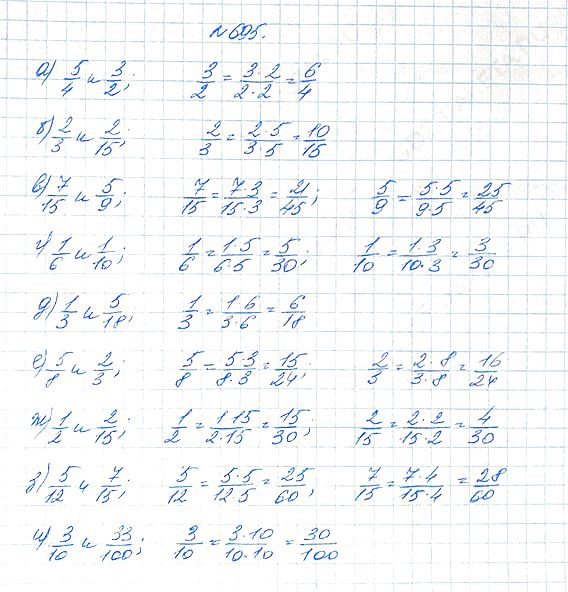 №695.
а) 5/4 и 3/2; 3/2 = 3·2/2·2 = 6/4
б) 2/3 и 2/15; 2/3 = 2·5/3·5 = 10/15
в) 7/15 и 5/9; 7/15 = 7·3/15·3 = 21/45; 5/9 = 5·5/9·5 = 25/45
г) 1/6 и 1/10; 1/6 = 1·5/6·5 = 5/30; 1/10 = 1·3/10·3 = 3/30
д) 1/3 и 5/18; 1/3 = 1·6/3·6 = 6/18
е) 5/8 и 2/3; 5/8 = 5·3/8·3 = 15/24; 2/3 = 2·8/3·8 = 16/24
ж) 1/2 и 2/15; 1/2 = 1·15/2·15 = 15/30; 2/15 = 2·2/15·2 = 4/30
з) 5/12 и 7/15; 5/12 = 5·5/12·5 = 25/60; 7/15 = 7·4/15·4 = 28/60
и) 3/10 и 33/100; 3/10 = 3·10/10·10 = 30/100